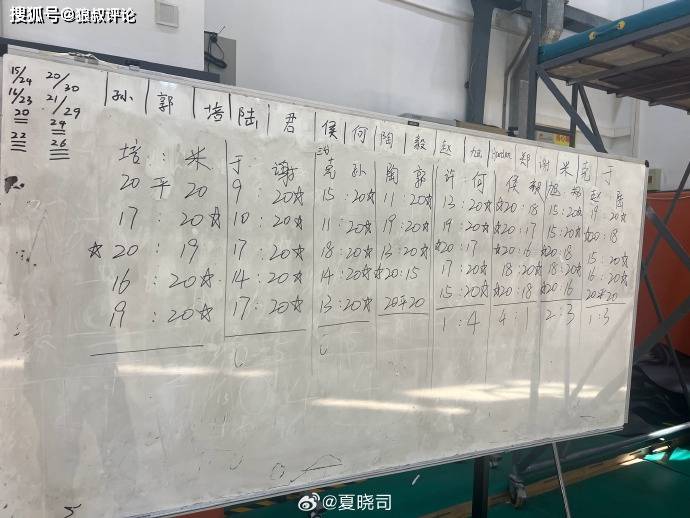 搜狐号@狼叔评论
15/24 20/30
14/23 21/29
20 24
22 26
孙 郭 培 陆 君 侯 何 陶 毅 赵 旭 郑 谢 米 克 于
培 : 米 于 : 谢 克 孙 陶 郭 许 : 何 侯
20 平 20 9 : 20☆ 15 : 20☆ 11 : 20☆ 12 : 20☆ ☆20 : 18 15 : 20☆ 19 : 20☆
17 : 20☆ 10 : 20☆ 11 : 20☆ 19 : 20☆ 19 : 20☆ ☆20 : 17 15 : 20☆ ☆20 : 18
☆20 : 19 17 : 20☆ 18 : 20☆ 13 : 20☆ ☆20 : 17 ☆20 : 16 ☆20 : 18 15 : 20☆
16 : 20☆ 14 : 20☆ 14 : 20☆ ☆20 : 15 17 : 20☆ 18 : 20☆ 18 : 20☆ 16 : 20☆
19 : 20☆ 17 : 20☆ 13 : 20☆ 20平20 15 : 20☆ ☆20 : 18 ☆20 : 16 20平20
1 : 4 4 : 1 2 : 3 1 : 3
@夏晓司